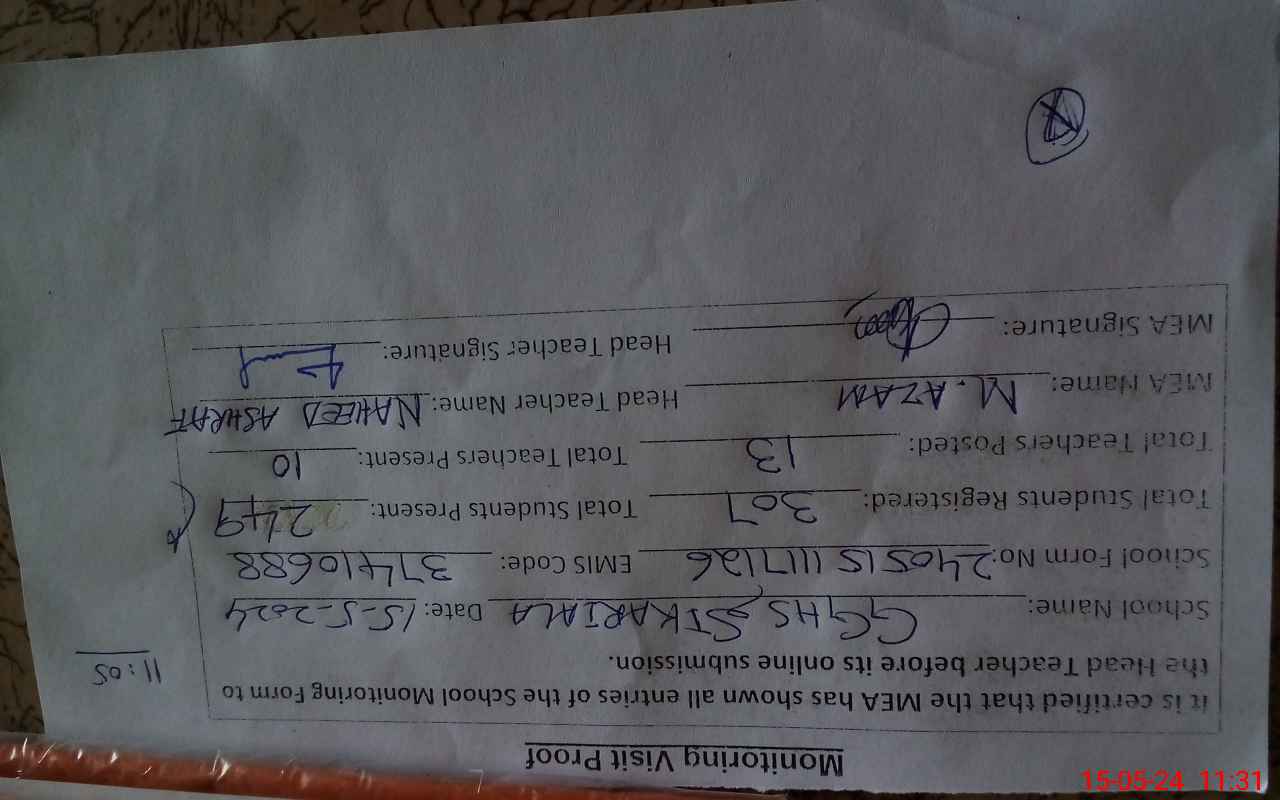 Monitoring Visit Proof
it is certified that the MEA has shown all entries of the School Monitoring Form to
the Head Teacher before its online submission.
11:05
School Name: GGHS SIKARIALA Date: 15-5-2024
School Form No: 2405151117126 EMIS Code: 37410688
Total Students Registered: 307 Total Students Present: 249
Total Teachers Posted: 13 Total Teachers Present: 10
MEA Name: M. AZAM Head Teacher Name: NAHEED ASHRAF
MEA Signature: Head Teacher Signature:
15-05-24 11:31